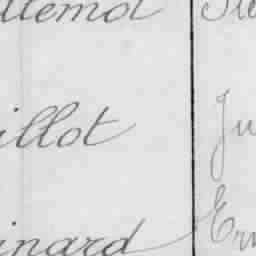 llemot
illot Ju
inard Ern